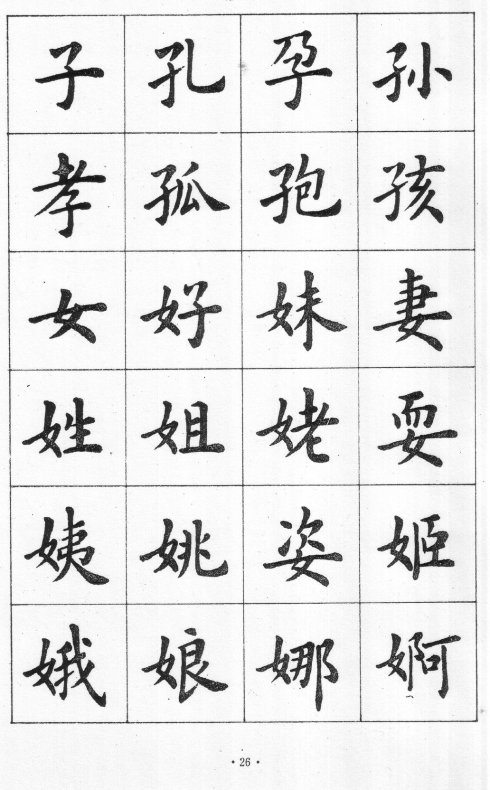 子孔孕孙
孝孤孢孩
女好妹妻
姓姐姥耍
姨姚姿姬
娥娘娜婀
·26·